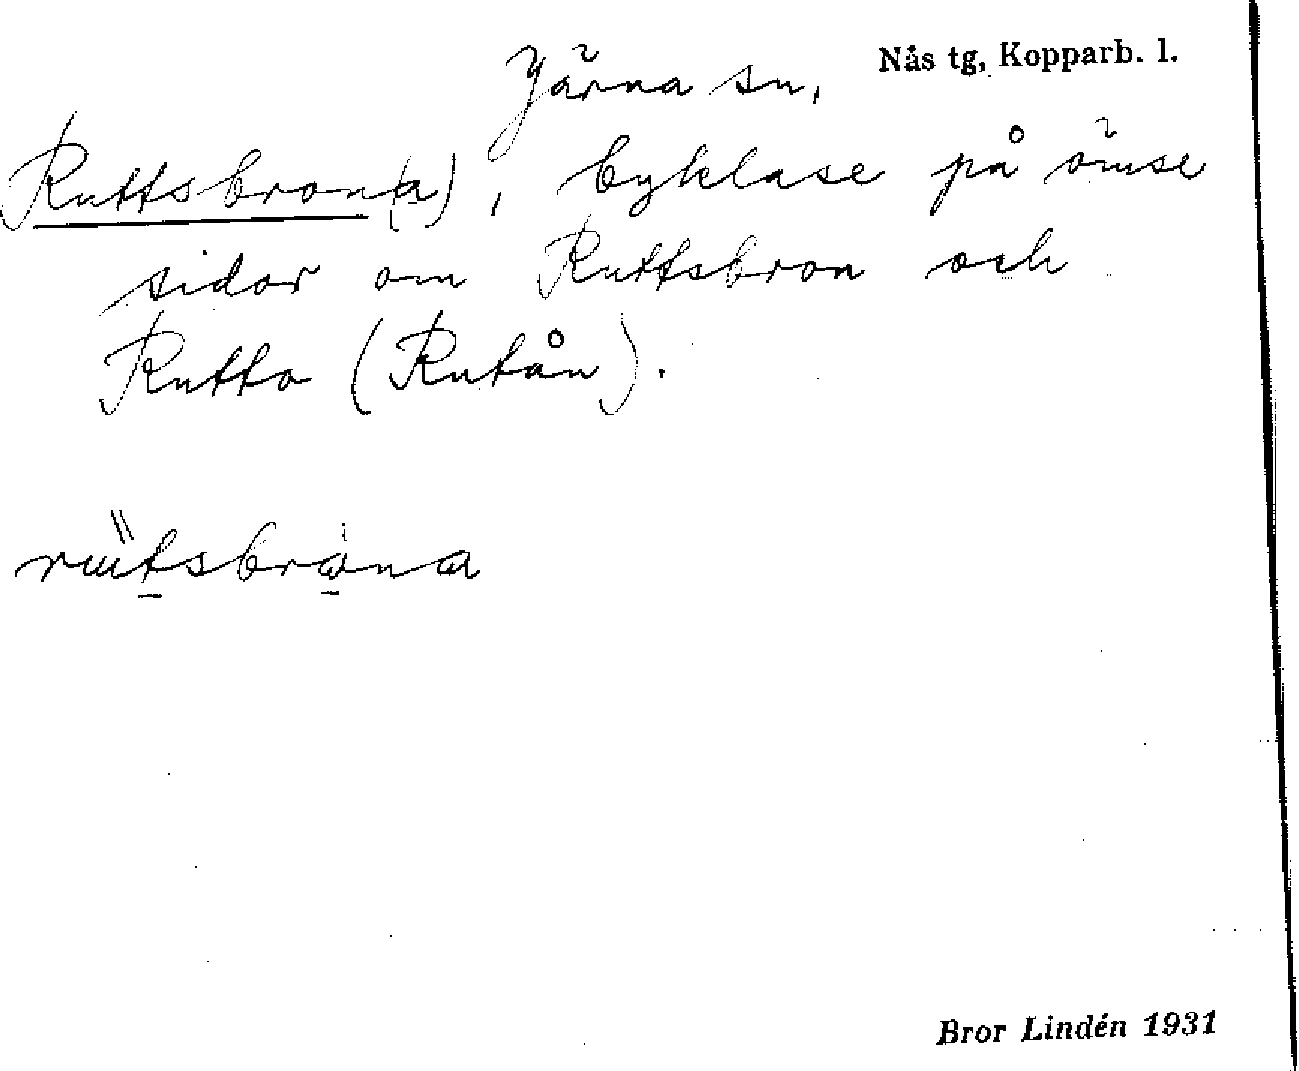 Järna sn, Nås tg, Kopparb. l.
Ruttsbron(a), byklase på ömse
sidor om Ruttsbron och
Rutto (Rutån).
Bror Lindén 1931